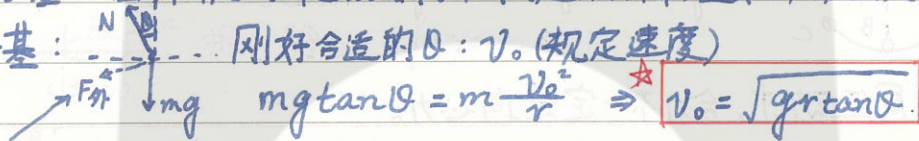 基: N θ 刚好合适的θ: v₀(规定速度)
F外 mg mgtanθ = m v₀²/r ⇒ ☆ v₀ = √grtanθ.